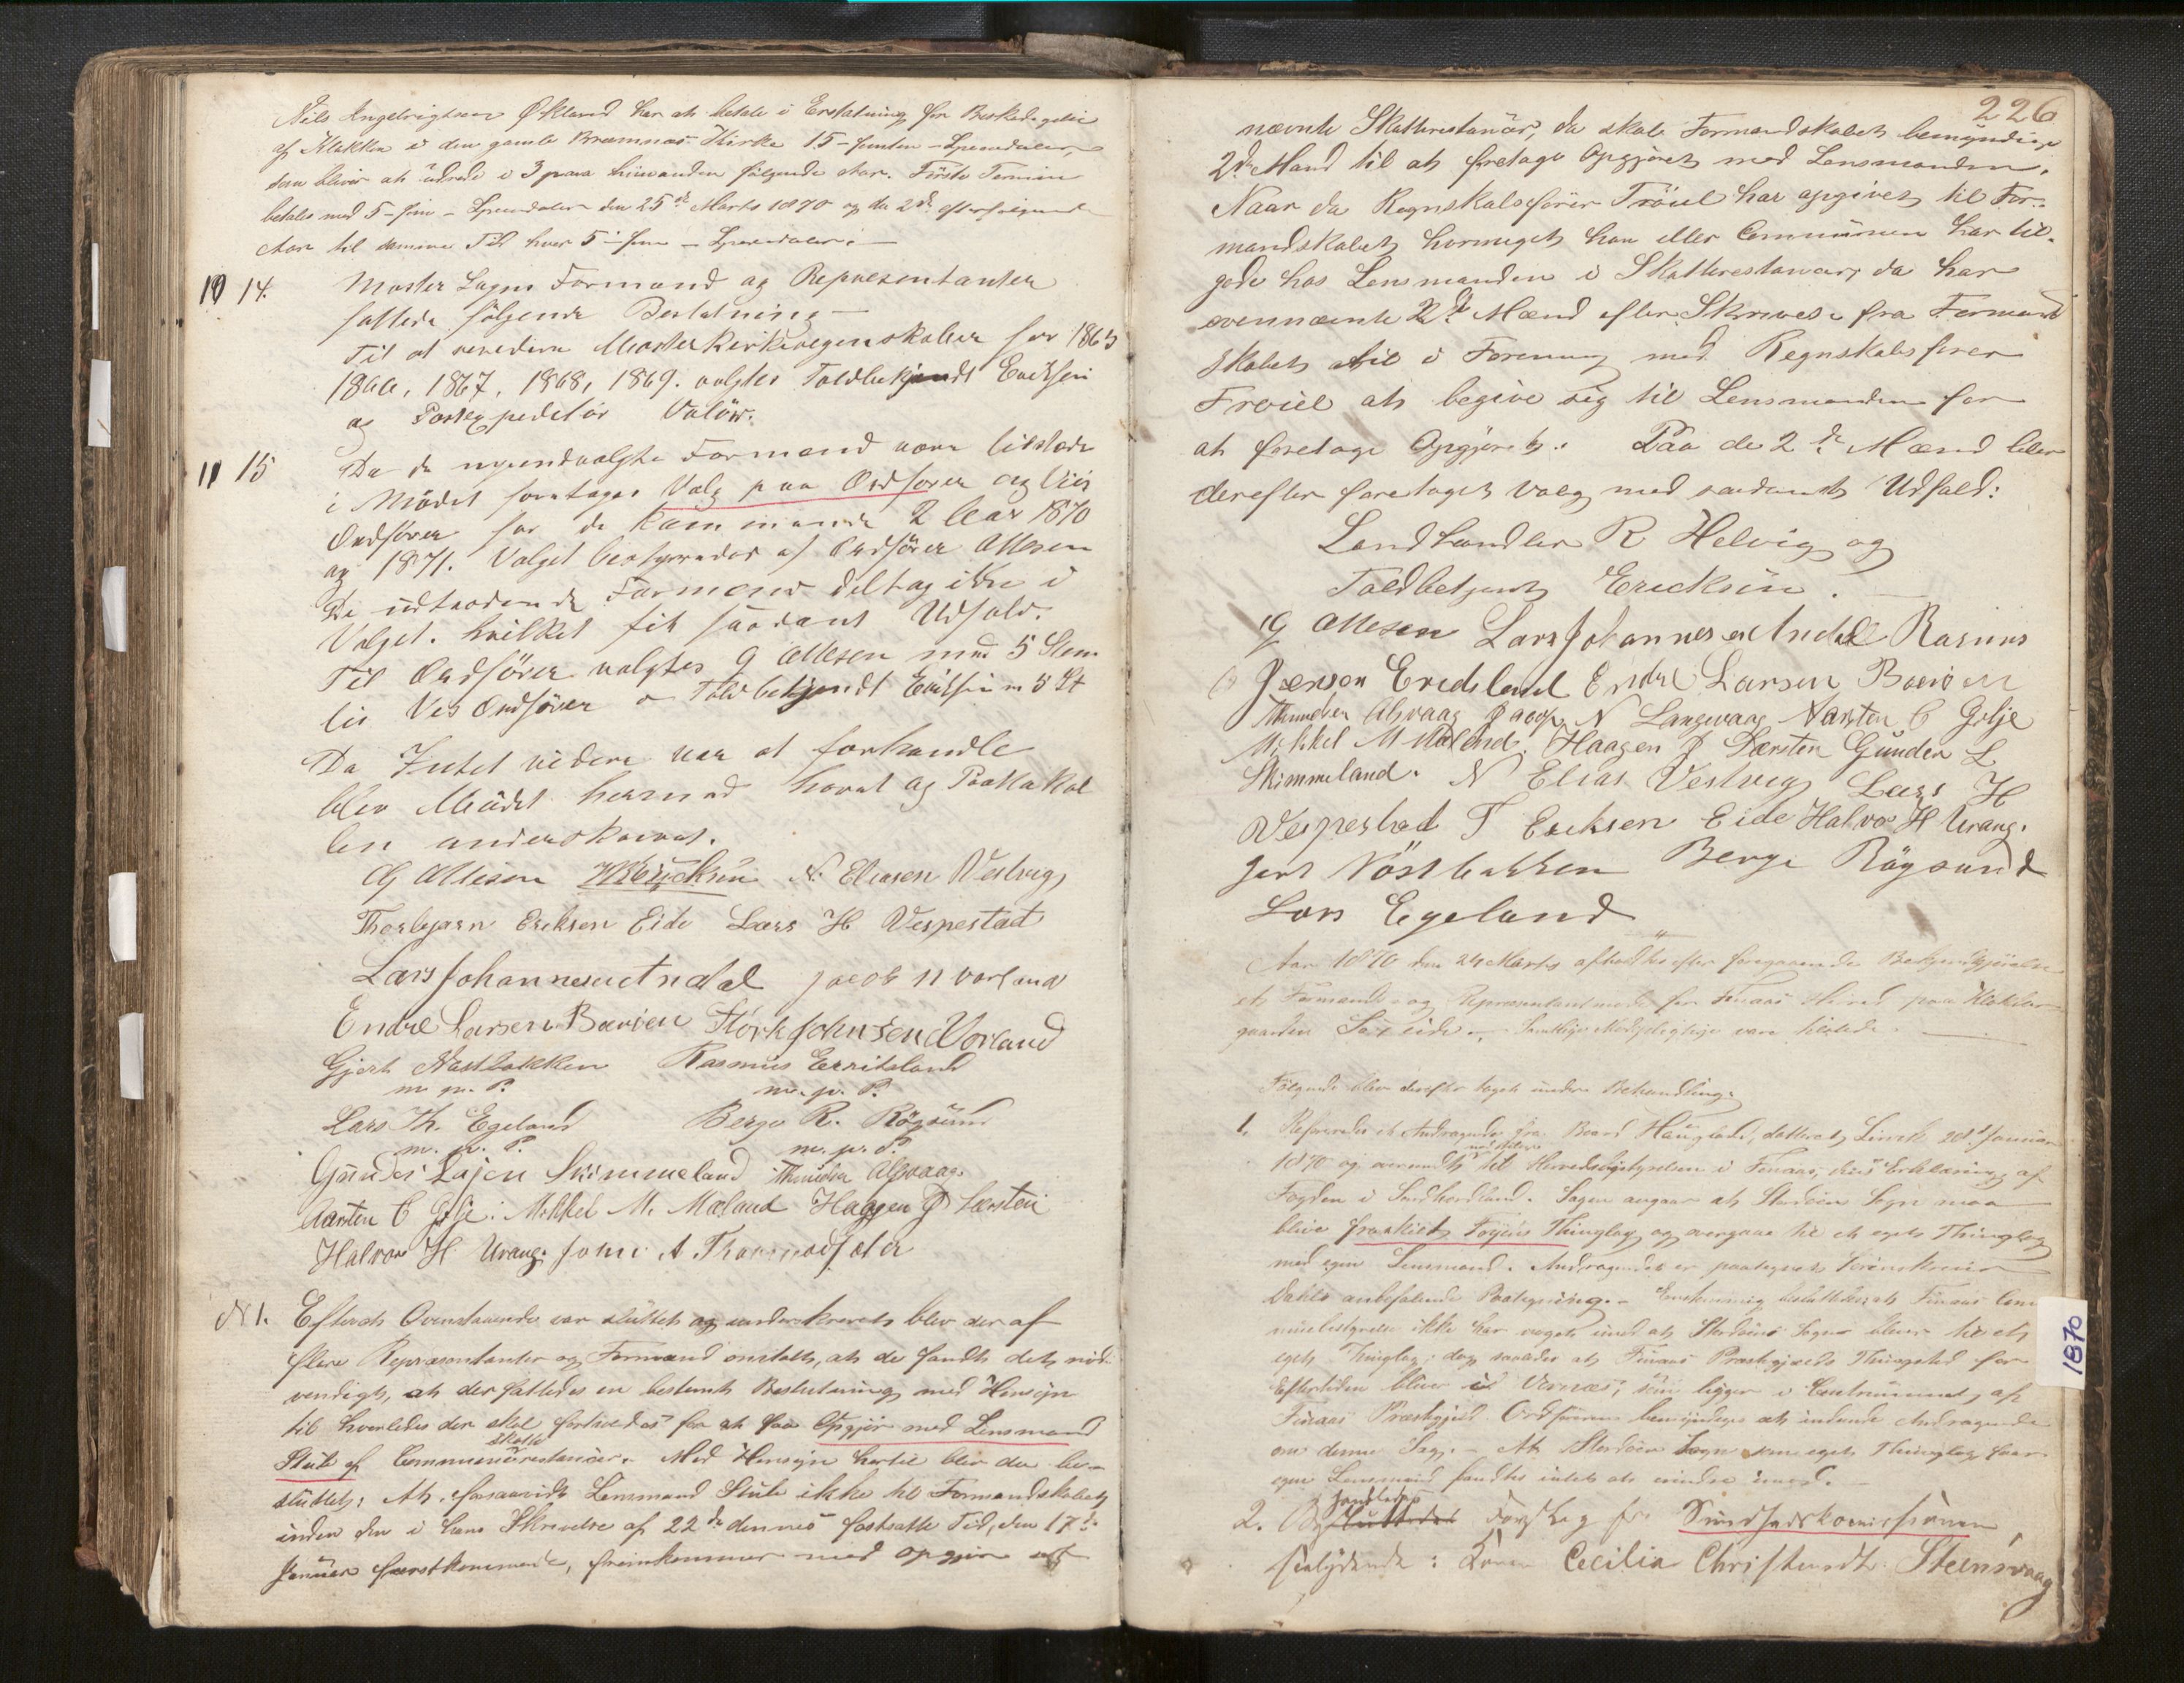 Nils Ingebrigtsen Økland har at betale i Erstatning for Beskadigelse
af Klokken i den gamle Bremnæs Kirke 15 - femten - Speciedaler,
som bliver at udrede i 3 paa hinanden følgende Aar. Første Termin
betales med 5 - fem - Speciedaler den 25de Marts 1870 og de 2de efterfølgende
Aar til samme Tid hver 5 - fem - Speciedaler. -
10 14. Moster Sogns Formænd og Repræsentanter
fattede følgende Beslutning -
Til at revidere Moster Kirkeregnskaber for 1865
1866, 1867, 1868, 1869. valgtes Toldbetjendt Ericksen
og Postexpeditør Valöw.
11 15 Da de nyindvalgte Formænd vare tilstede
i Mödet foretages Valg paa Ordförer og Vice
Ordförer for de kommende 2 Aar 1870
og 1871. Valget bestyredes af Ordförer Ottesen
De udtrædende Formænd deltog ikke i
Valget. hvilket fik saadant Udfald:
Til Ordförer valgtes G Ottesen med 5 Stem
Vis Ordförer Toldbetjendt Ericksen m 5 St
Da Intet videre var at forhandle
blev Mödet hermed hævet og Protokol
len underskrevet.
G Ottesen Ericksen N. Eliasen Vestvig
Thorbjørn Eriksen Eide Lars H Vespestad
Lars Johannesen Indal Jacob N Vorland
Endre Larsen Børøen Størk Johnsen Vorland
Gjert Nøstbakken Rasmus Erritsland
m. p. P. m. p. P.
Lars Th. Egeland Berge R. Røgsund
m. p. P. m. p. P.
Gunder Lasen Skimmeland Alsvaag.
C Gilje. Mikkel M. Mæland Haagen J Børsten
Halvor H Urang. John A
N 1. Efterat Ovenstaaende var sluttet og underskrevet blev der af
flere Repræsentanter og Formænd omtalt, at de fandt det nöd-
vendigt, at der fattedes en bestemt Beslutning med Hensyn
til hvorledes der skal forholdes for at faa Opgjör med Lensmand
skatte
Stub af Communerestancer. Med Hensyn hertil blev der be-
sluttet: At, forsaavidt Lensmand Stub ikke til Formandskabet
inden den i hans Skrivelse af 22de dennes fastsatte Tid, den 17de
Januar førstkommende, fremkommer med Opgjör over
226
nævnte Skatterestancer, da skal Formandskabet bemyndige
2de Mænd til at foretage Opgjöret med Lensmanden.
Naar da Regnskabsförer Tröiel har opgivet til For-
mandskabet hvormeget han eller Communen har til-
gode hos Lensmanden i Skatterestancer, da har
ovennævnte 2de Mænd efter Skrivelse fra Formand
skabet til i Forening med Regnskabsförer
Tröiel at begive sig til Lensmanden for
at foretage Opgjöret. Paa de 2de Mænd blev
derefter foretaget Valg med saadant Udfald:
Landhandler R Helvig og
Toldbetjent Ericksen.
G Ottesen Lars Johannesen Indal Rasmus
Jensen Eredsland Endre Larsen Børøen
Alsvaag Jacop N Langevaag C Gilje
Mikkel M Mæland. Haagen J Børsten Gunder L
Skimmeland. N Elias Vestvig Lars H
Vespestad T Ericksen Eide Halvor H Urang.
Gert Nöstbakken Berge Rögsund
Lars Egeland
Aar 1870 den 24 Marts afholdtes efter foregaaende Bekjendtgjörelse
et Formands- og Repræsentantmöde for Finaas Herred paa Klokker
gaarden Sæ eide. Samtlige Medlemmer vare tilstede.
Fölgende blev derefter taget under Behandling:
1, Refereredes et Andragende fra Baard Haugland, dateret Lervik 20de Januar
1870 og oversendt til Herredsbestyrelsen i Finaas, til Erklæring af
Fogden i Sundhordland. Sagen angaar at Stordöen Sogn maa
blive fraskilt Föyens Thinglag og overgaa til et eget Thinglag
med egen Lensmand. Andragendet er paategnet Sorenskriver
Dahls anbefalende Paategning. - Enstemmig besluttedes at Finaas Com
munebestyrelse ikke har noget imod at Stordöens Sogn bliver til et
eget Thinglag; dog saaledes at Finaas Præstegjælds Thingsted for
Eftertiden bliver Vernæs, som ligger i Centrummet af
Finaas Præstegjæld. Ordföreren bemyndiges at indsende Andragende
om denne Sag. - At Stordöen Sogn som eget Thinglag faar
egen Lensmand fandtes intet at erindre imod. -
2. Forslag fra Sundhedskommissionen
saalydende: Konen Cecilia Christensdt. Steensvaag
1870